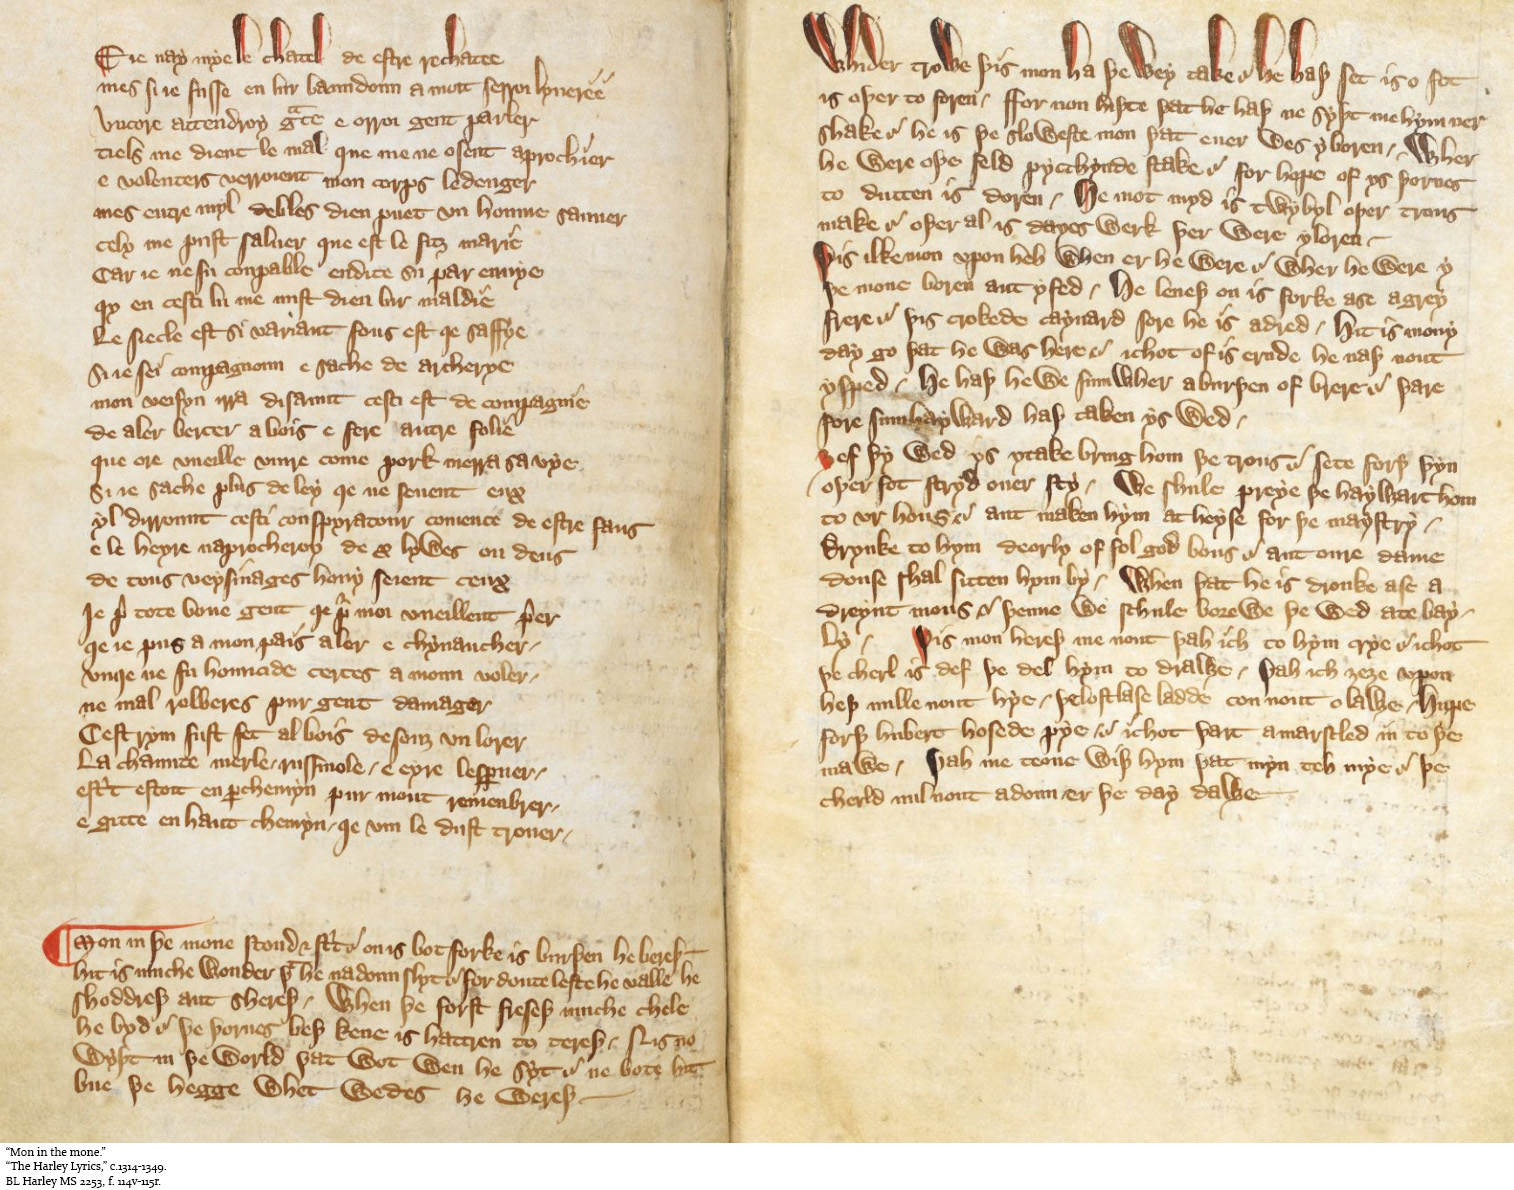 Et ie nay mye le chatel de estre rechatee
mes si ie fusse en lur baundoun a mort serroi lyveree
Uncore attendroy grace e orroi gent parler
tiels me dient le mal que me ne osent aprochier
e volenters verroient mon corps ledenger
mes entre myl debles dieu puet un homme sauver
cely me pust saluer que est le fitz marie
Car ie ne su coupable endite su par envye
qy en cesti lu me mist dieu lur maldie
Le siecle est si variant fous est qe saffye
Si ie sei compagnoun e sache de archerye
mon veisyn irra disaunt cesti est de compagnie
de aler bercer a bois e fere autre folie
que ore vueille vivre come pork merra sa vye
Si ie sache plus de ley qe ne sevent eux
yl dirrount cesti conspyratour comence de estre faus
e le heyre naprocheroy de x lywes ou deus
de tous veysinages hony seient ceux
Je pri tote bone gent qe pur moi vueillent prier
qe ie pus a mon pais aler e chyvaucher
unqe ne fu homicide certes a moun voler
ne mal robberes pur gent damager
Cest rym fust fet al bois desouz un lorer
La chaunte merle russinole e eyre lesperver
escrit estoit en perchemyn pur mout remenbrer
e gitte en haut chemyn qe um le dust trover
Mon in þe mone stond & strit on is bot forke is burþen he bereþ
hit is muche wonder þat he nadoun slyt for doute leste he valle he
shoddreþ ant shereþ When þe forst freseþ muche chele
he byd þe þornes beþ kene is hattren to tereþ Nis no
wyþt in þe world þat wot wen he syt ne bote hit
bue þe hegge whet wedes he wereþ
Whider trowe þis mon ha þe wey take he haþ set is o fot
is oþer to foren ffor non hiþte þat he haþ ne syþt me hym ner
shake he is þe sloweste mon þat ever wes yboren Wher
he were oþe feld pycchynde stake for hope of ys þornes
to dutten is doren He mot myd is twybyl oþer trous
make oþer al is dayes werk þer were yloren
Þis ilke mon upon heh when er he were wher he were y
þe mone boren ant yfed He leneþ on is forke ase a grey
frere þis crokede caynard sore he is adred Hit is mony
day go þat he was here ichot of is ernde he naþ nout
ysped He haþ hewe sumwher a burþen of brere þare
fore sum hayward haþ taken ys wed
Ȝef þy wed ys ytake bring hom þe trous sete forþ þyn
oþer fot stryd over sty We shule preye þe haywart hom
to ur hous ant maken hym at heyse for þe maystry
Drynke to hym deorly of fol god bous ant oure dame
douse shal sitten hym by When þat he is dronke ase a
dreynt mous þenne we schule borewe þe wed ate bay
ly Þis mon hereþ me nout þah ich to hym crye ichot
þe cherl is def þe del hym to drawe Þah ich ȝeȝe upon
heþ nulle nout hye þe lostlase ladde con nout o lawe Hupe
forþ hubert hosede pye ichot þart amarscled in to þe
mawe Þah me teone wiþ hym þat myn teh mye þe
cherld nul nout adoun er þe day dawe
“Mon in the mone.”
“The Harley Lyrics,” c.1314-1349.
BL Harley MS 2253, f. 114v-115r.